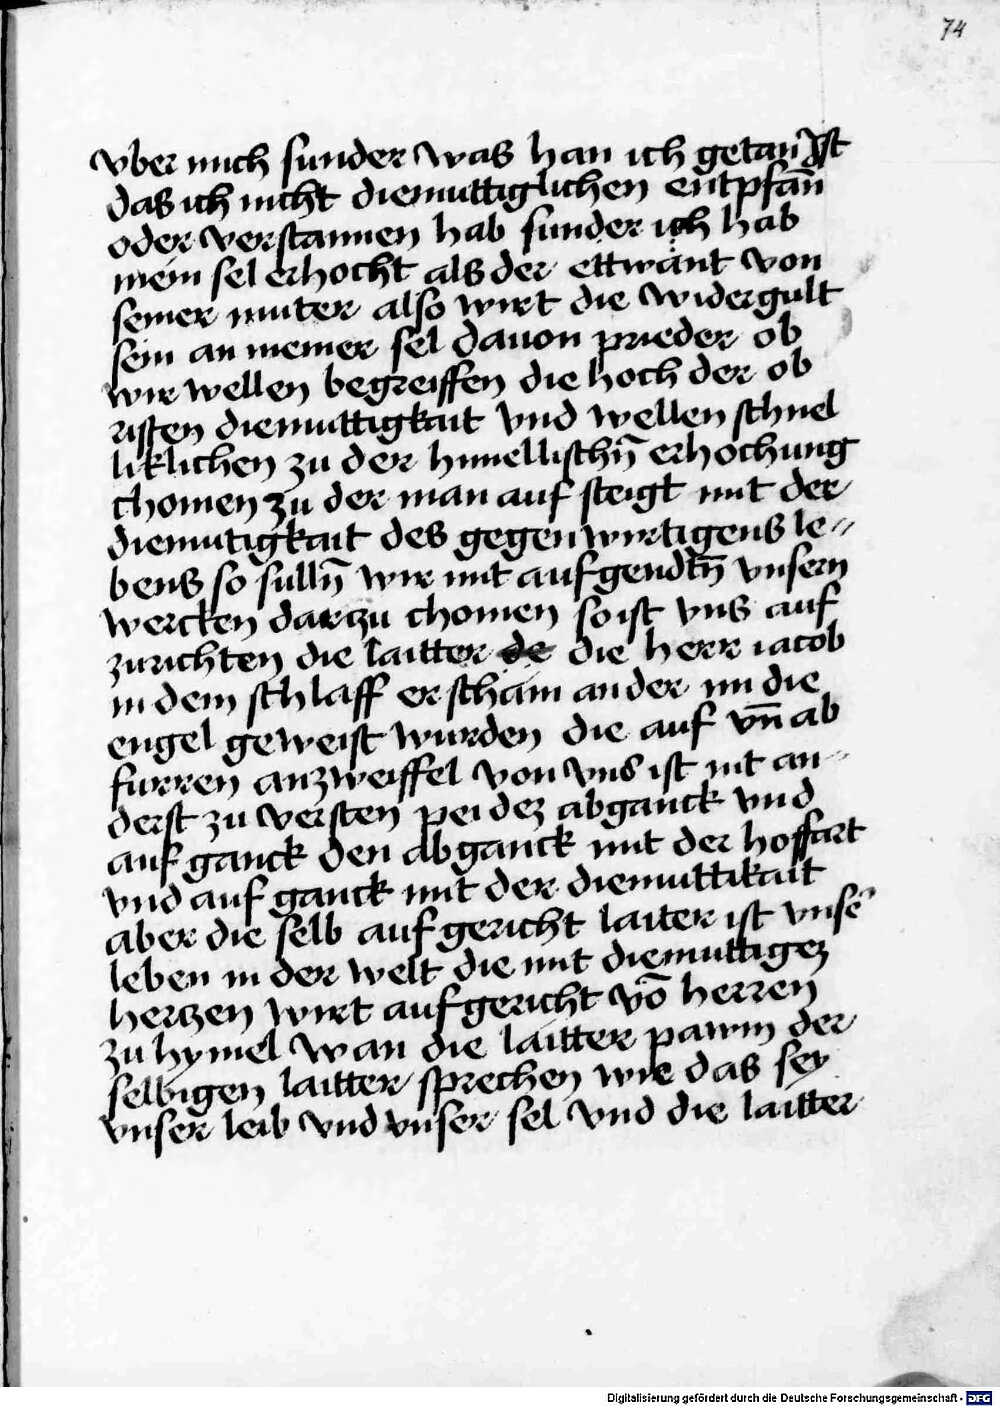 74
vber mich sunder was han ich getan Ist
das ich nicht diemuttiglichen entpfān
oder verstannen hab sunder ich hab
mein sel erhocht als der ettwant von
seiner muter also wirt die widergult
sein an meiner sel dauon prieder ob
wir wellen begreiffen die hoch der ob
risten diemuttigkait vnd wellen schnel
liklichen zu der himellischn̄ erhochung
chomen zu der man auf steigt mit der
diemutigkait des gegenwurtigens le⸗
bens so sulln̄ wir mit aufgendtn̄ vnsern
wercken darzu chomen so ist vns auf
zurichten die laitter die herr iacob
in dem schlaff erschain an der im die
engel geweist wurden die auf vn̄ ab
furren anzweiffel von vns ist nit an⸗
derst zu versten pei dez abganck vnd
auf ganck den abganck mit der hoffart
vnd auf ganck mit der diemuttikait
aber die selb aufgericht laiter ist vnse᷑
leben in der welt die mit diemuttigez
hertzen wirt aufgericht vō herren
zu hymel wan die laitter pawm der
selbigen laitter sprechen wir das sey
vnser leib vnd vnser sel vnd die laitter
Digitalisierung gefördert durch die Deutsche Forschungsgemeinschaft - DFG